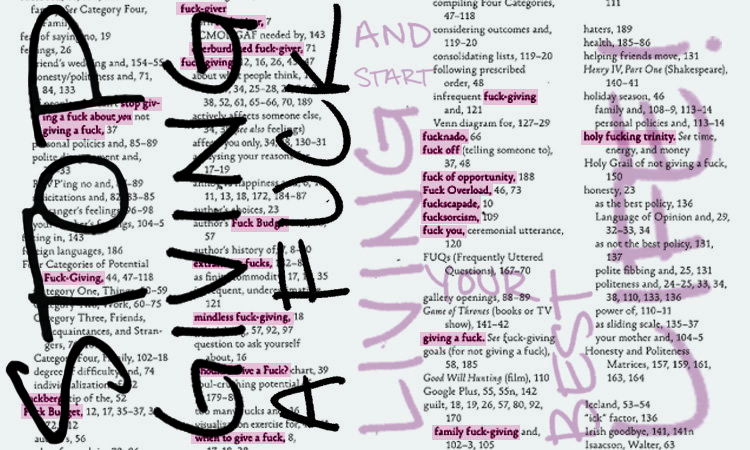 STOP
GIVING
A #UCK
AND
START
LIVING
YOUR
BEST
LIFE.
family. See Category Four,
Family
fear of saying no, 19
feelings, 26
friend's wedding and, 154–55
honesty/politeness and, 71,
84, 133
stop giv-
ing a fuck about you not
giving a fuck, 37
personal policies and, 85–89
polite
and,
33
RSVP'ing no and,
solicitations and, 82, 83–85
stranger's feelings, 96–98
your mother's feelings, 104–5
in, 143
foreign languages, 186
Four Categories of Potential
Fuck-Giving, 44, 47–118
Category One, Things,
Category Two, Work, 60–75
Category Three, Friends,
Acquaintances, and Stran-
gers,
Category Four, Family, 102–18
degree of difficulty and, 74
individualization
tip of the, 52
Fuck Budget, 12, 17, 35–37,
56
fuck-giver
7
GAF needed by, 143
overburdened fuck-giver, 71
fuck-giving, 12, 16, 26, 45, 47
about what people think,
34, 25–28,
38, 52, 61, 65–66, 70, 189
actively affects someone else,
34, (see also feelings)
affects you only, 34, 130–31
analysing your reasons
17–19
happiness
11, 13, 18, 172, 184–87
author's choices, 23
author's Fuck Budget,
57
author's history of,
fucks,
as finite commodity, 17, 35
121
mindless fuck-giving, 18
57, 92, 97
question to ask yourself
about, 16
a Fuck? chart, 39
soul-crushing potential
179–
too many fucks and, 16
visualization exercise for,
when to give a fuck, 8,
17, 18, 38
compiling Four Categories,
47–118
considering outcomes and,
119–20
consolidating lists, 119–20
following prescribed
order, 48
infrequent fuck-giving
and, 121
Venn diagram for, 127–29
fucknado, 66
fuck off (telling someone to),
37, 48
fuck of opportunity, 188
Fuck Overload, 46, 73
fuckscapade, 10
fucksorcism, 109
fuck you, ceremonial utterance,
120
FUQs (Frequently Uttered
Questions), 167–70
gallery openings, 88–89
Game of Thrones (books or TV
show), 141–42
giving a fuck. See fuck-giving
goals (for not giving a fuck),
58, 185
Good Will Hunting (film), 110
Google Plus, 55, 55n, 142
guilt, 18, 19, 26, 57, 80, 92,
170
family fuck-giving and,
102–3, 105
111
haters, 189
health, 185–86
helping friends move, 131
Henry IV, Part One (Shakespeare),
140–41
holiday season, 46
family and, 108–9, 113–14
personal policies and, 113–14
holy fucking trinity. See time,
energy, and money
Holy Grail of not giving a fuck,
150
honesty, 23
as the best policy, 136
Language of Opinion and, 29,
32–33, 34
as not the best policy, 131,
137
polite fibbing and, 25, 131
politeness and, 24–25, 33, 34,
38, 110, 133, 136
power of, 110–11
as sliding scale, 135–37
your mother and, 104–5
Honesty and Politeness
Matrices, 157, 159, 161,
163, 164
Iceland, 53–54
"ick" factor, 136
Irish goodbye, 141, 141n
Isaacson, Walter, 63